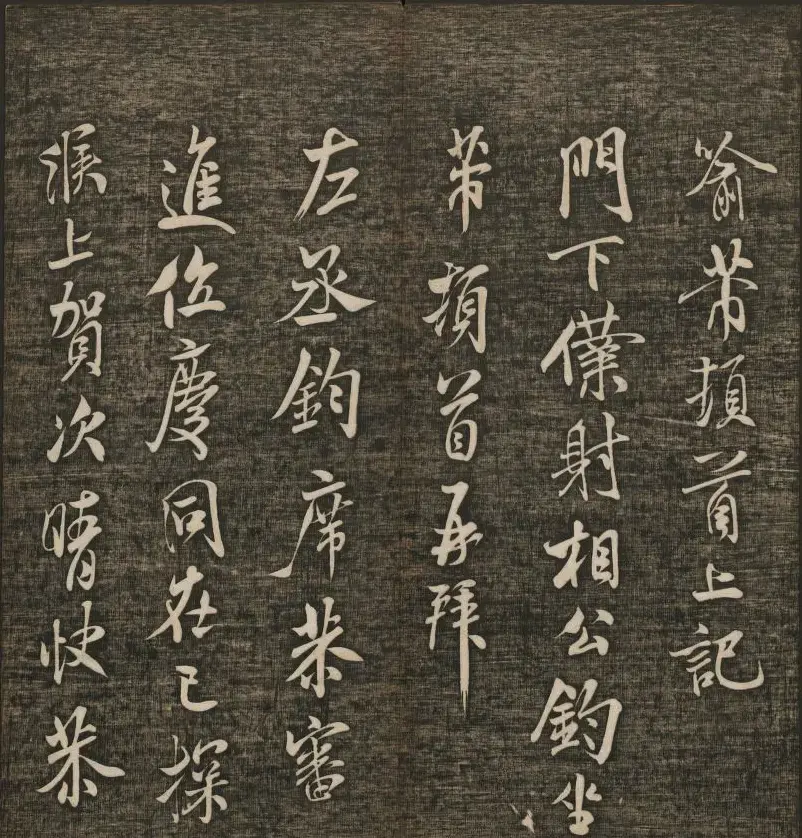 喻芾頓首上記
門下僕射相公鈞坐
芾頓首再拜
左丞鈞席恭審
進位慶同在己探
候上賀次晴快恭